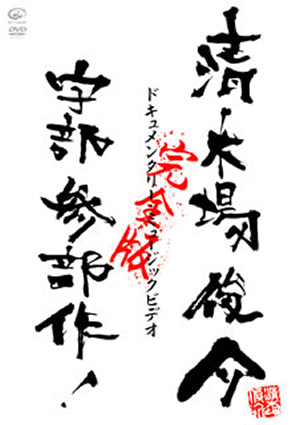 清木場俊介
ドキュメンタリーミュージックビデオ
完全版
宇部参部作！
DVD